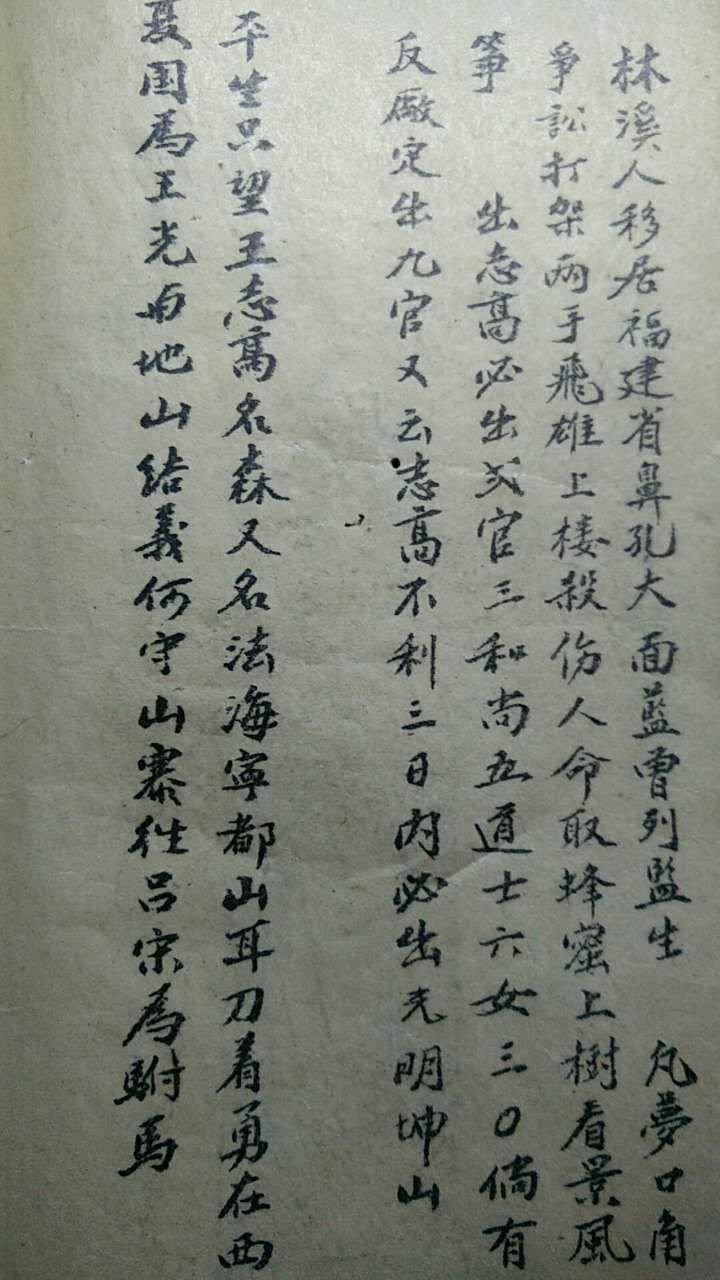 林溪人移居福建省鼻孔大面藍曾列監生　凡夢口角
爭訟打架兩手飛雄上楼殺伤人命取蜂蜜上樹看景風
筝　出志高必出弍官三和尚五道士六女三〇倘有
反厰定生九官又云志高不利三日內必出光明坤山
平生只望王志高名森又名法海寧都山耳刀着勇在西
国爲王光由地山結義何守山寨往吕宋爲駙馬